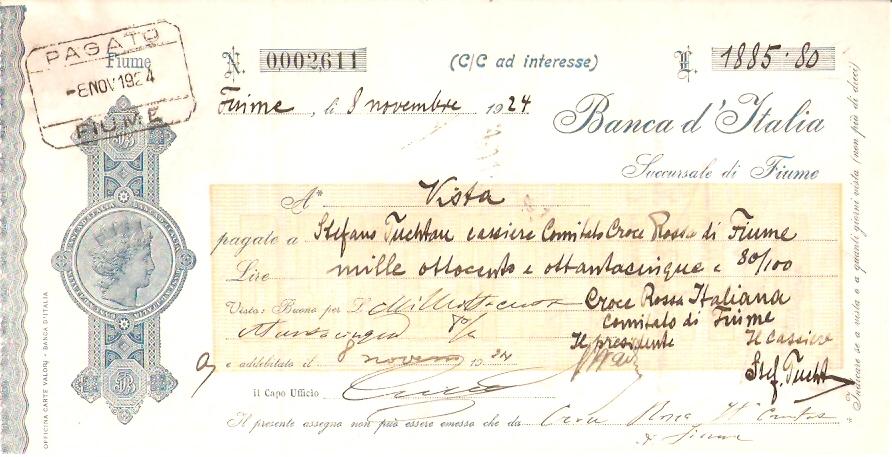 PAGATO
Fiume
-8 NOV 1924
FIUME
N. 0,002,611
(C/C ad interesse)
L. 1885.80
Fiume, li 8 novembre 1924
Banca d'Italia
Succursale di Fiume
A* Vista
pagate a Stefano Tuchtan cassiere Comitato Croce Rossa di Fiume
Lire mille ottocento e ottantacinque e 80/100
Visto: Buono per L. Milleottocento
Croce Rossa Italiana
Comitato di Fiume
Il presidente
Il Cassiere
e addebitato il 8 novem 1924
Stef. Tucht
il Capo Ufficio
Il presente assegno non può essere emesso che da Croce Rossa
di Fiume
* Indicare se a vista o a quanti giorni vista (non più di dieci)
OFFICINA CARTE VALORI - BANCA D'ITALIA